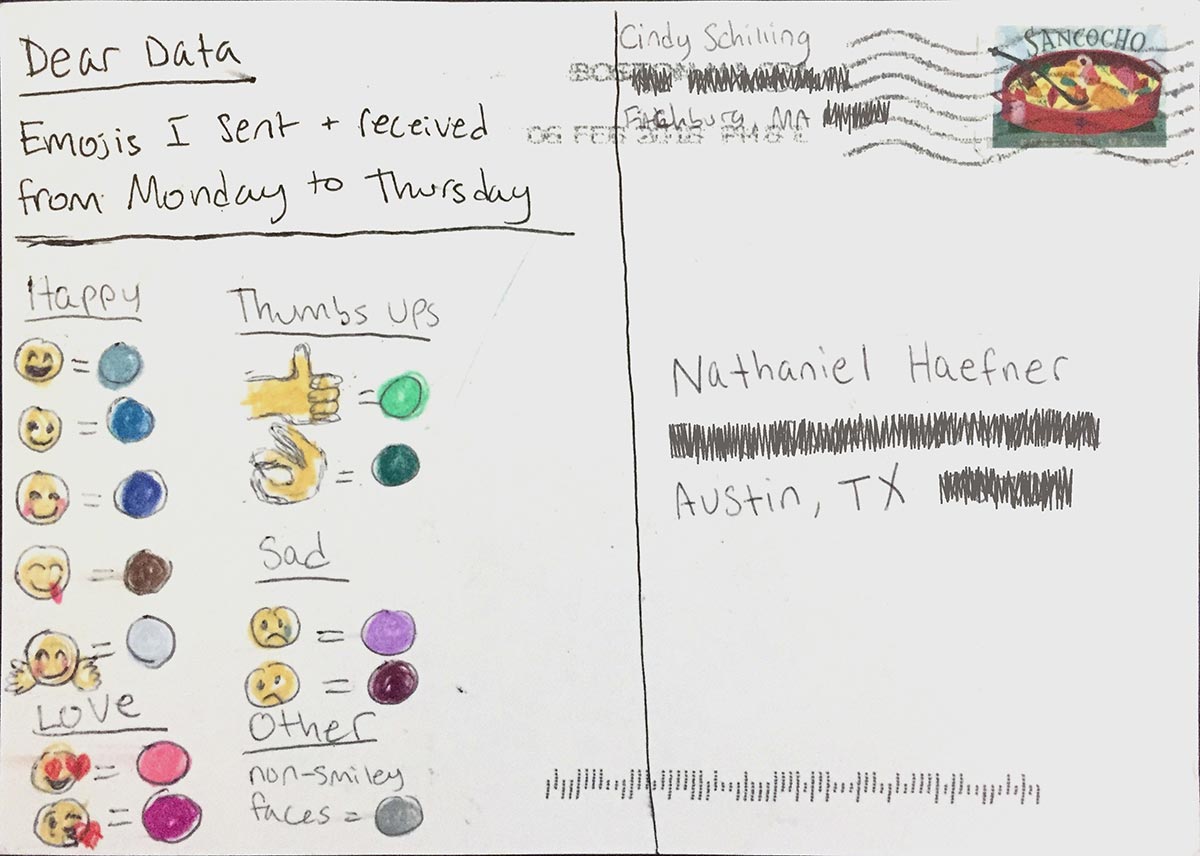 Dear Data
Emojis I sent + received
from Monday to Thursday
Happy
=
=
=
=
=
Love
=
=
Thumbs ups
=
=
Sad
=
=
Other
non-smiley
faces =
Cindy Schilling
BOSTON
Fitchburg, MA
06 FEB
SANCOCHO
Nathaniel Haefner
Austin, TX